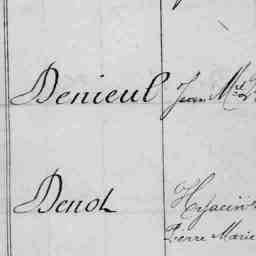 Denieul Jean Mle
Denot Hyacin
Pierre Marie